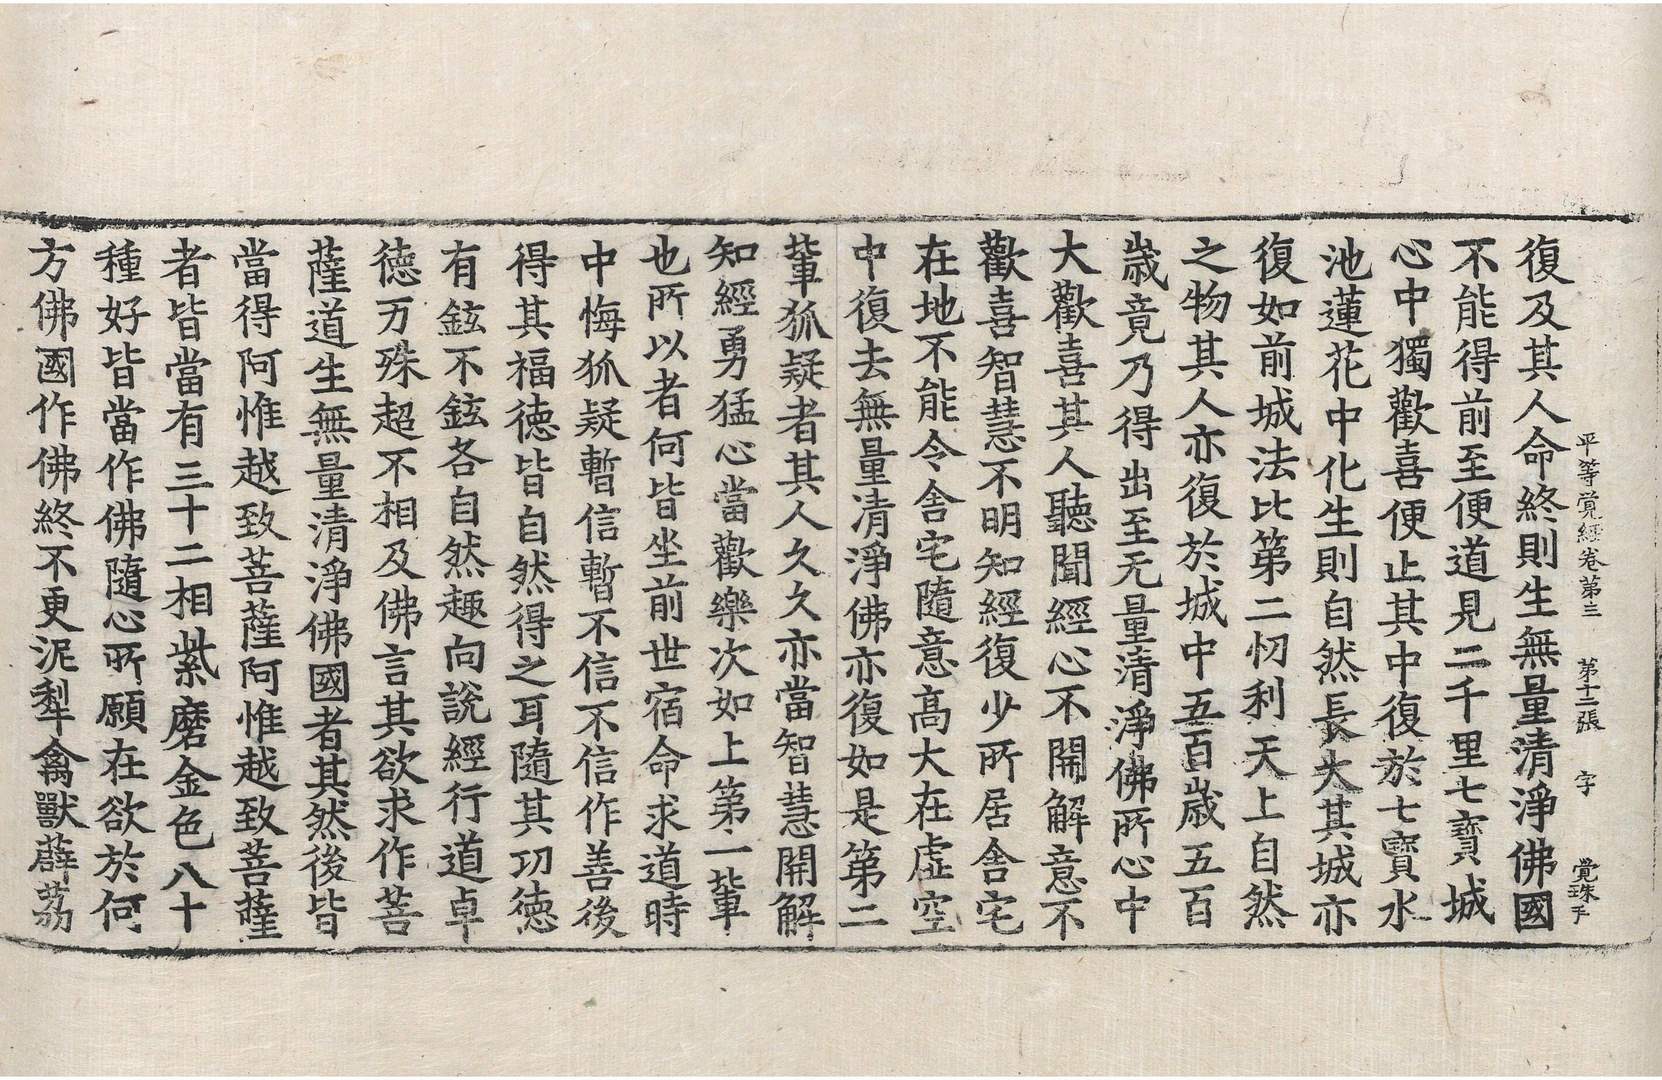 平等覚經卷第三 第十二張 字 覺珠手
復及其人命終則生無量清淨佛國
不能得前至便道見二千里七寳城
心中獨歡喜便止其中復於七寳水
池蓮花中化生則自然長大其城亦
復如前城法比第二忉利天上自然
之物其人亦復於城中五百歲五百
歲竟乃得出至无量清淨佛所心中
大歡喜其人聽聞經心不開解意不
歡喜智慧不明知經復少所居舎宅
在地不能令舎宅隨意高大在虛空
中復去無量清淨佛亦復如是第二
輩狐疑者其人久久亦當智慧開解
知經勇猛心當歡樂次如上第一輩
也所以者何皆坐前世宿命求道時
中悔狐疑暫信暫不信不信作善後
得其福徳皆自然得之耳隨其功徳
有鉉不鉉各自然趣向說經行道卓
徳万殊超不相及佛言其欲求作菩
薩道生無量清淨佛國者其然後皆
當得阿惟越致菩薩阿惟越致菩薩
者皆當有三十二相紫磨金色八十
種好皆當作佛隨心所願在欲於何
方佛國作佛終不更泥犁禽獸薜荔